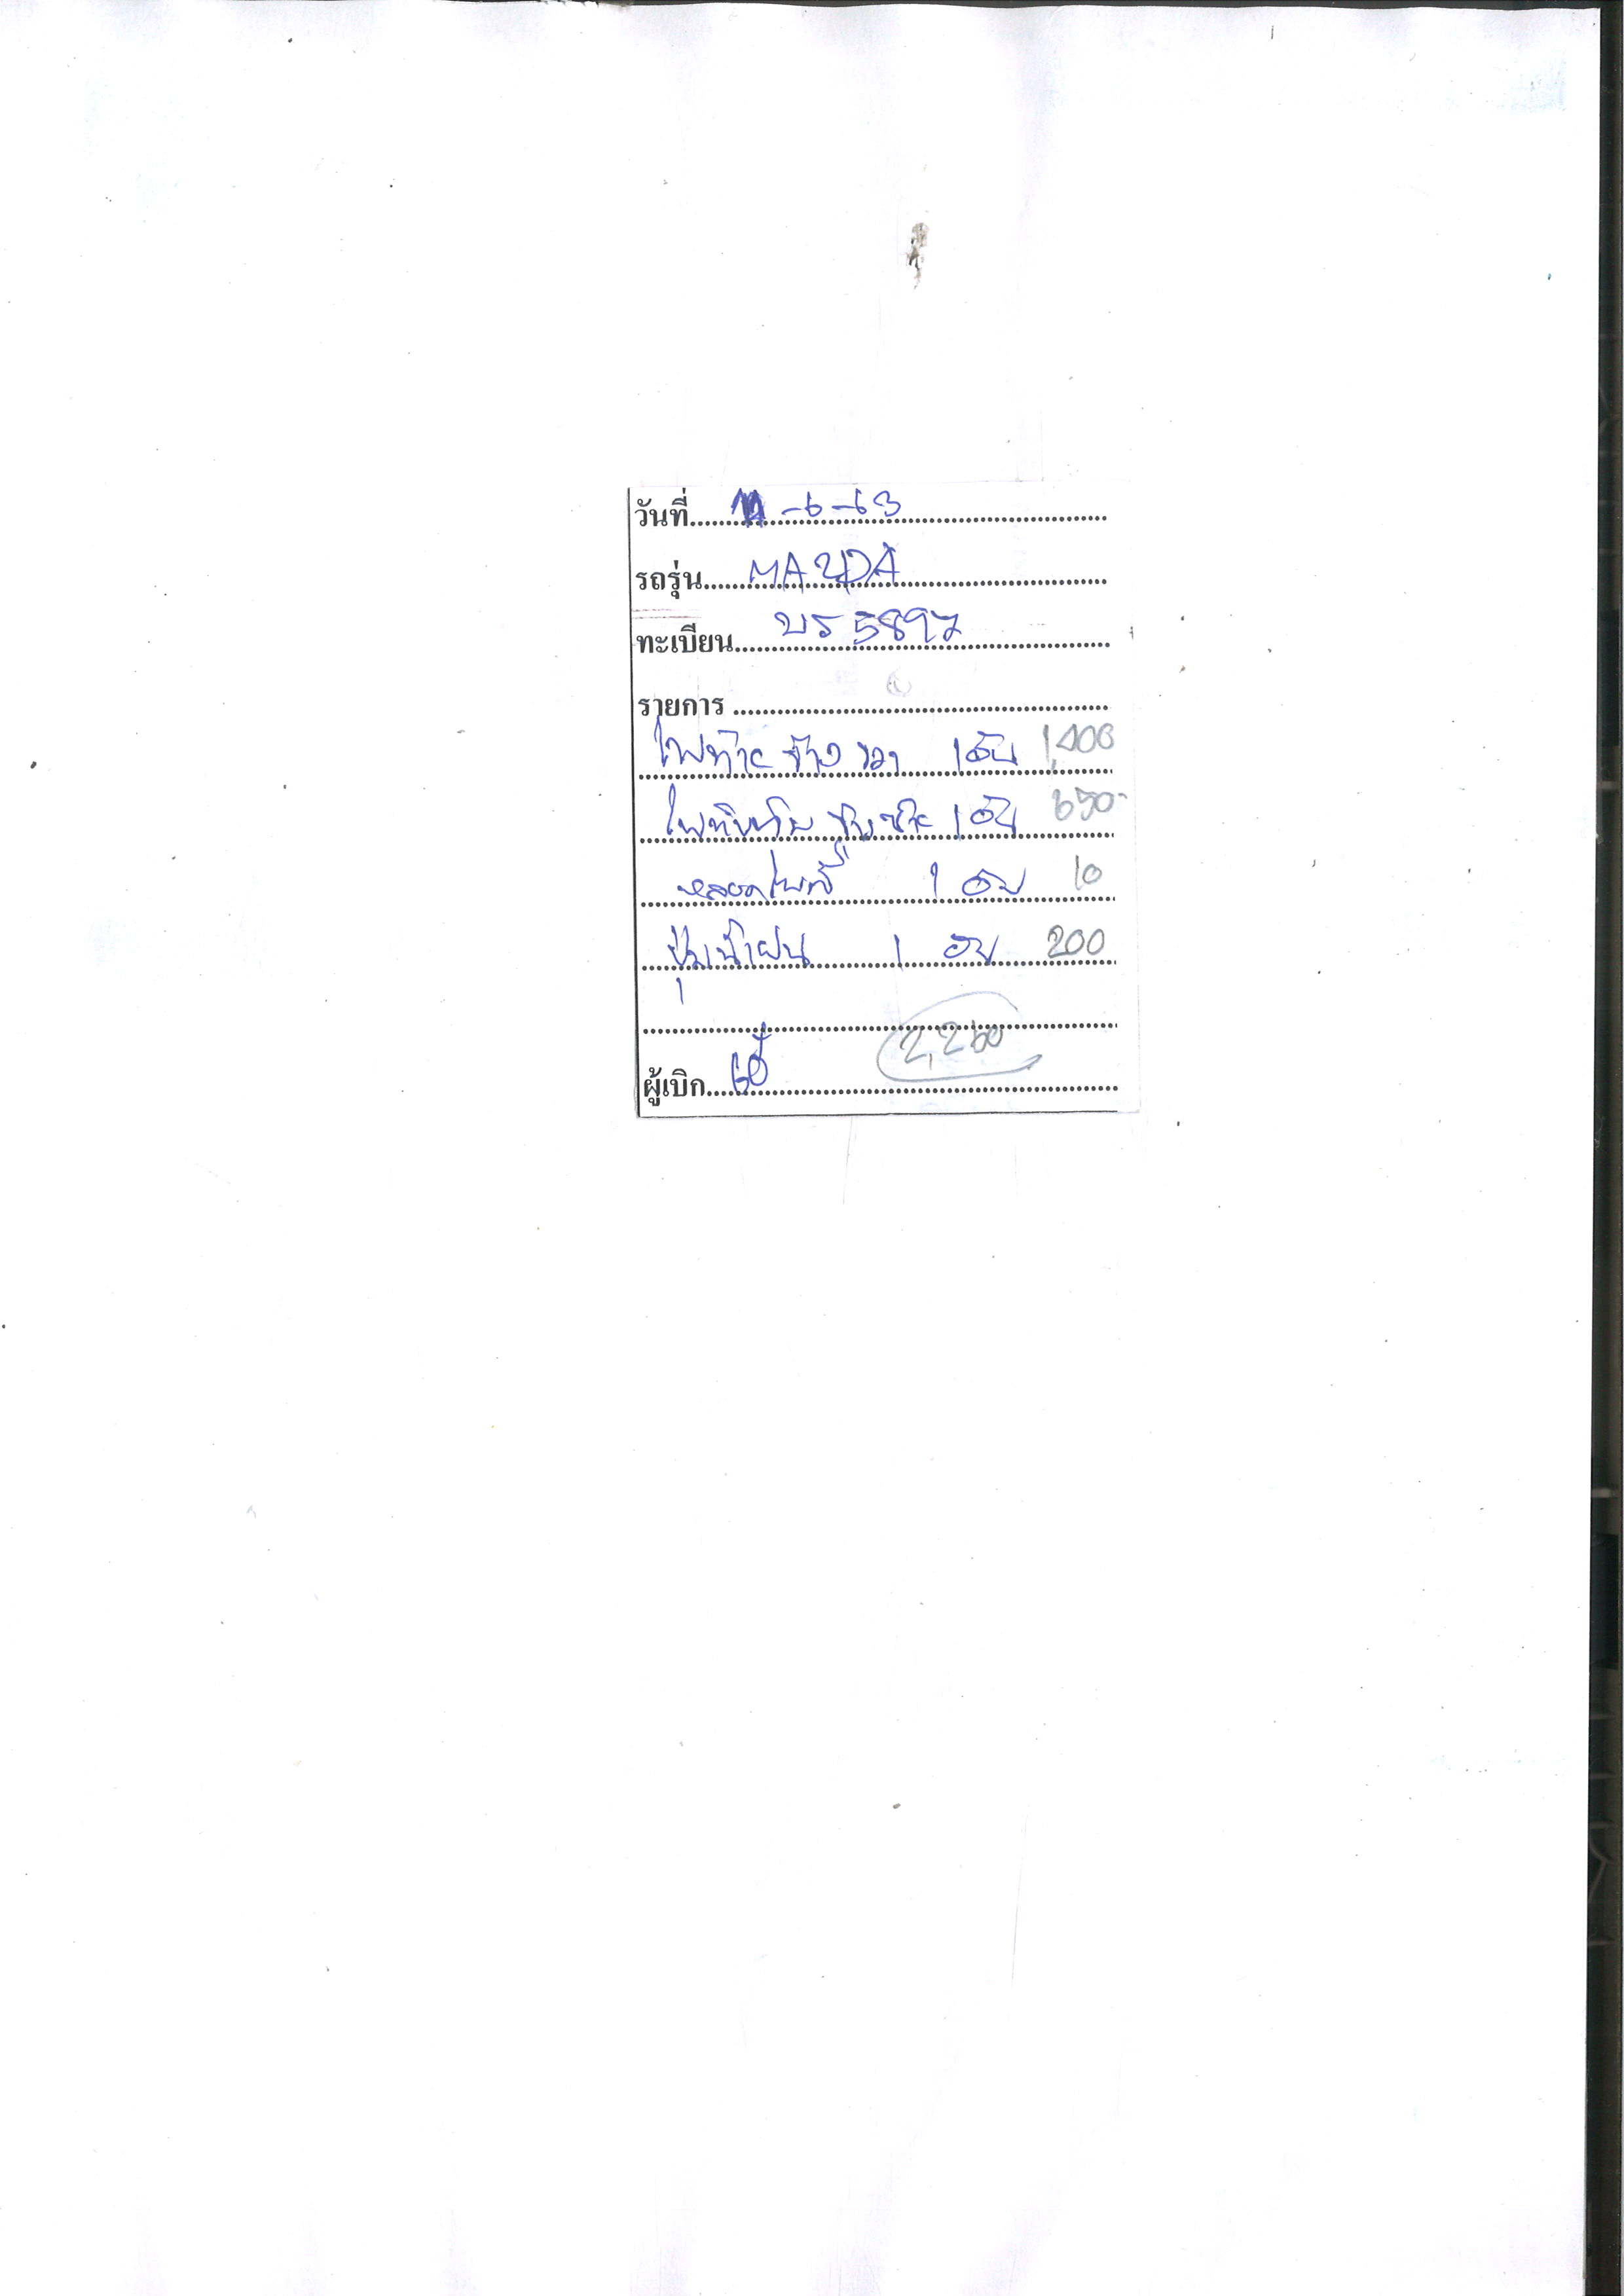 วันที่ -6-63
รถรุ่น MAZDA
ทะเบียน บร 5897
รายการ
ไฟท้าย ข้าง ขวา 1 อัน 1,400
ไฟทับทิม ข้างซ้าย 1 อัน 650-
หลอดไฟ 1 อัน 10
ปุ่มน้ำฝน 1 อัน 200
2,260
ผู้เบิก